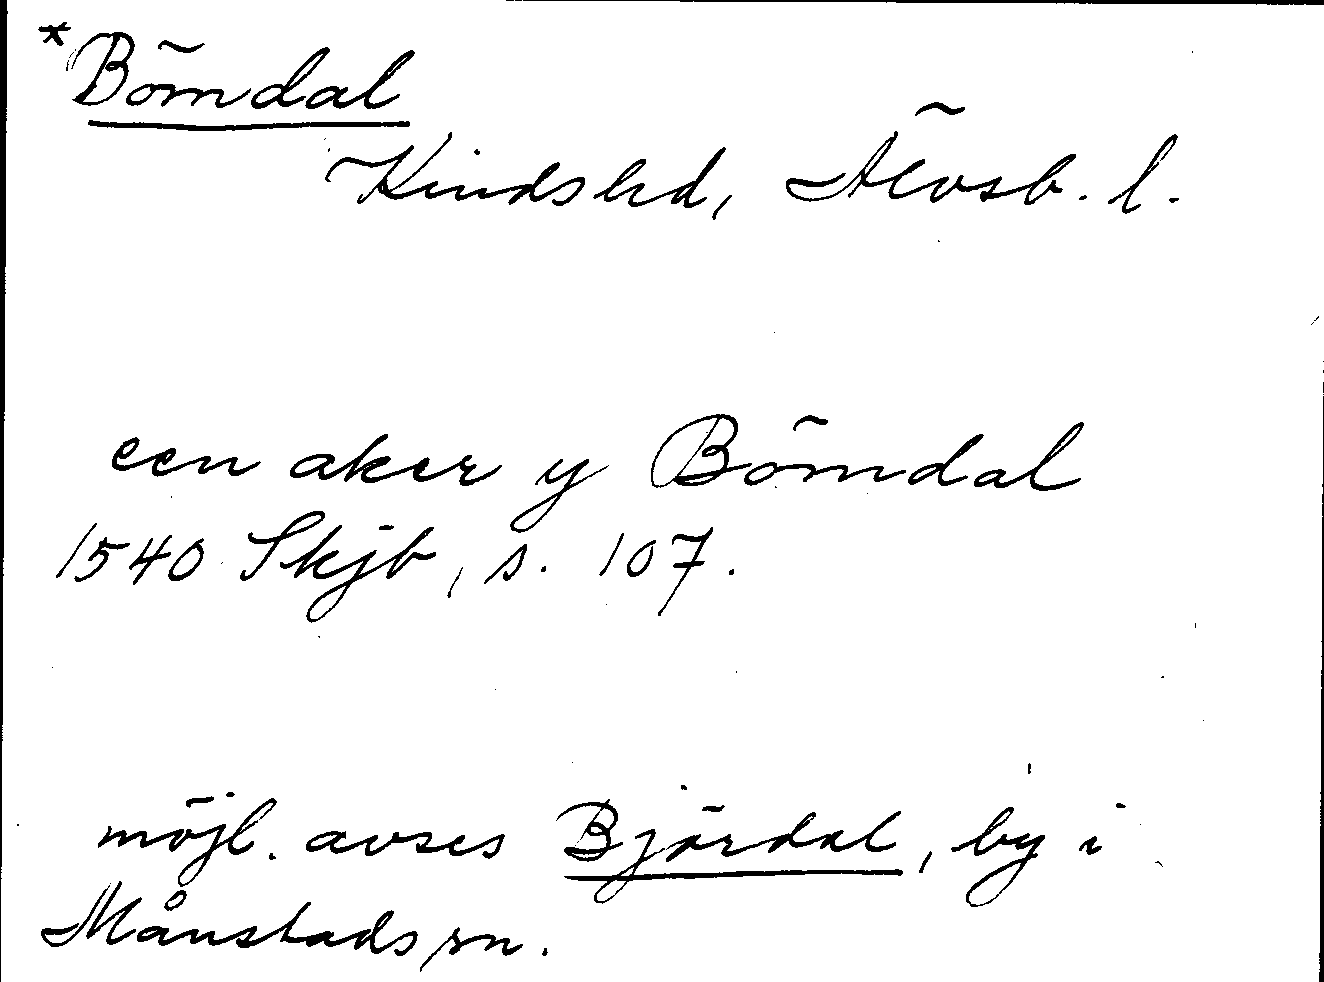 *Bömdal
Kindshd, Älvsb. l.
een aker y Bömdal
1540 Skjb, s. 107.
möjl. avses Björdal, by i
Månstads sn.